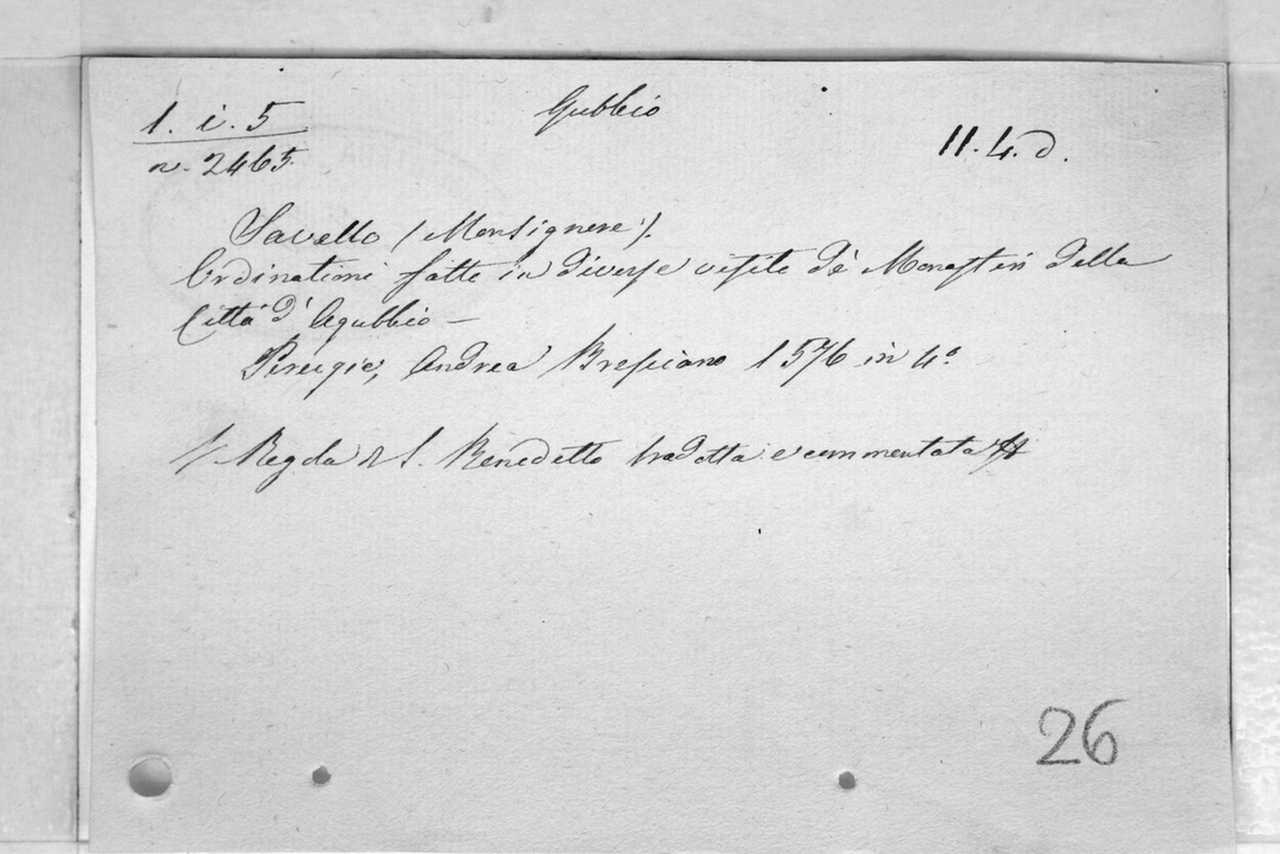 Gubbio
1. i. 5
n. 2465
11. 4. d.
Savello (Monsignore).
Ordinationi fatte in diverse visite de' Monasteri della
Città d' Agubbio —
Perugie, Andrea Bresciano 1576 in 4.°
Regola di S. Benedetto tradotta e commentata
26